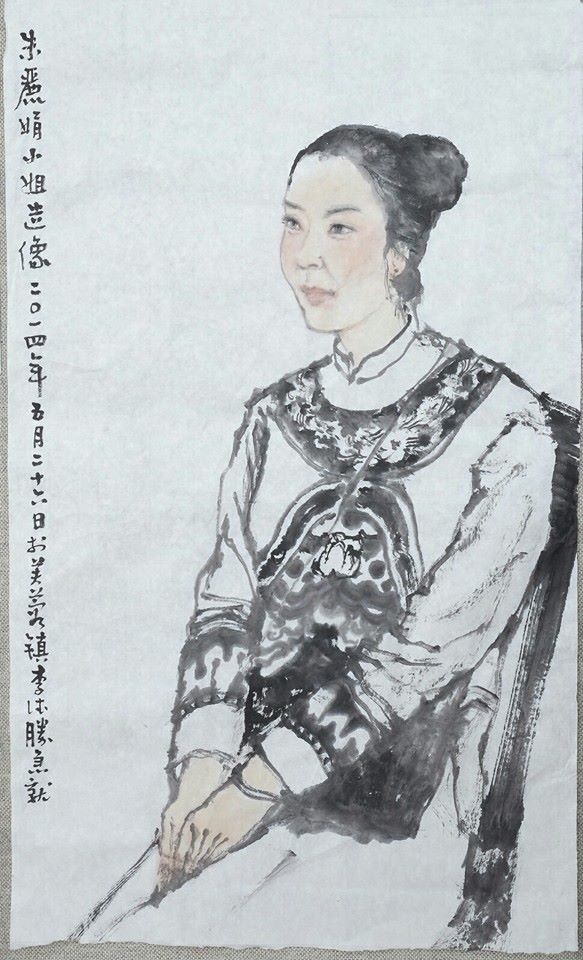 朱麗娟小姐造像二〇一四年五月二十六日於芙蓉镇李沐勝急就